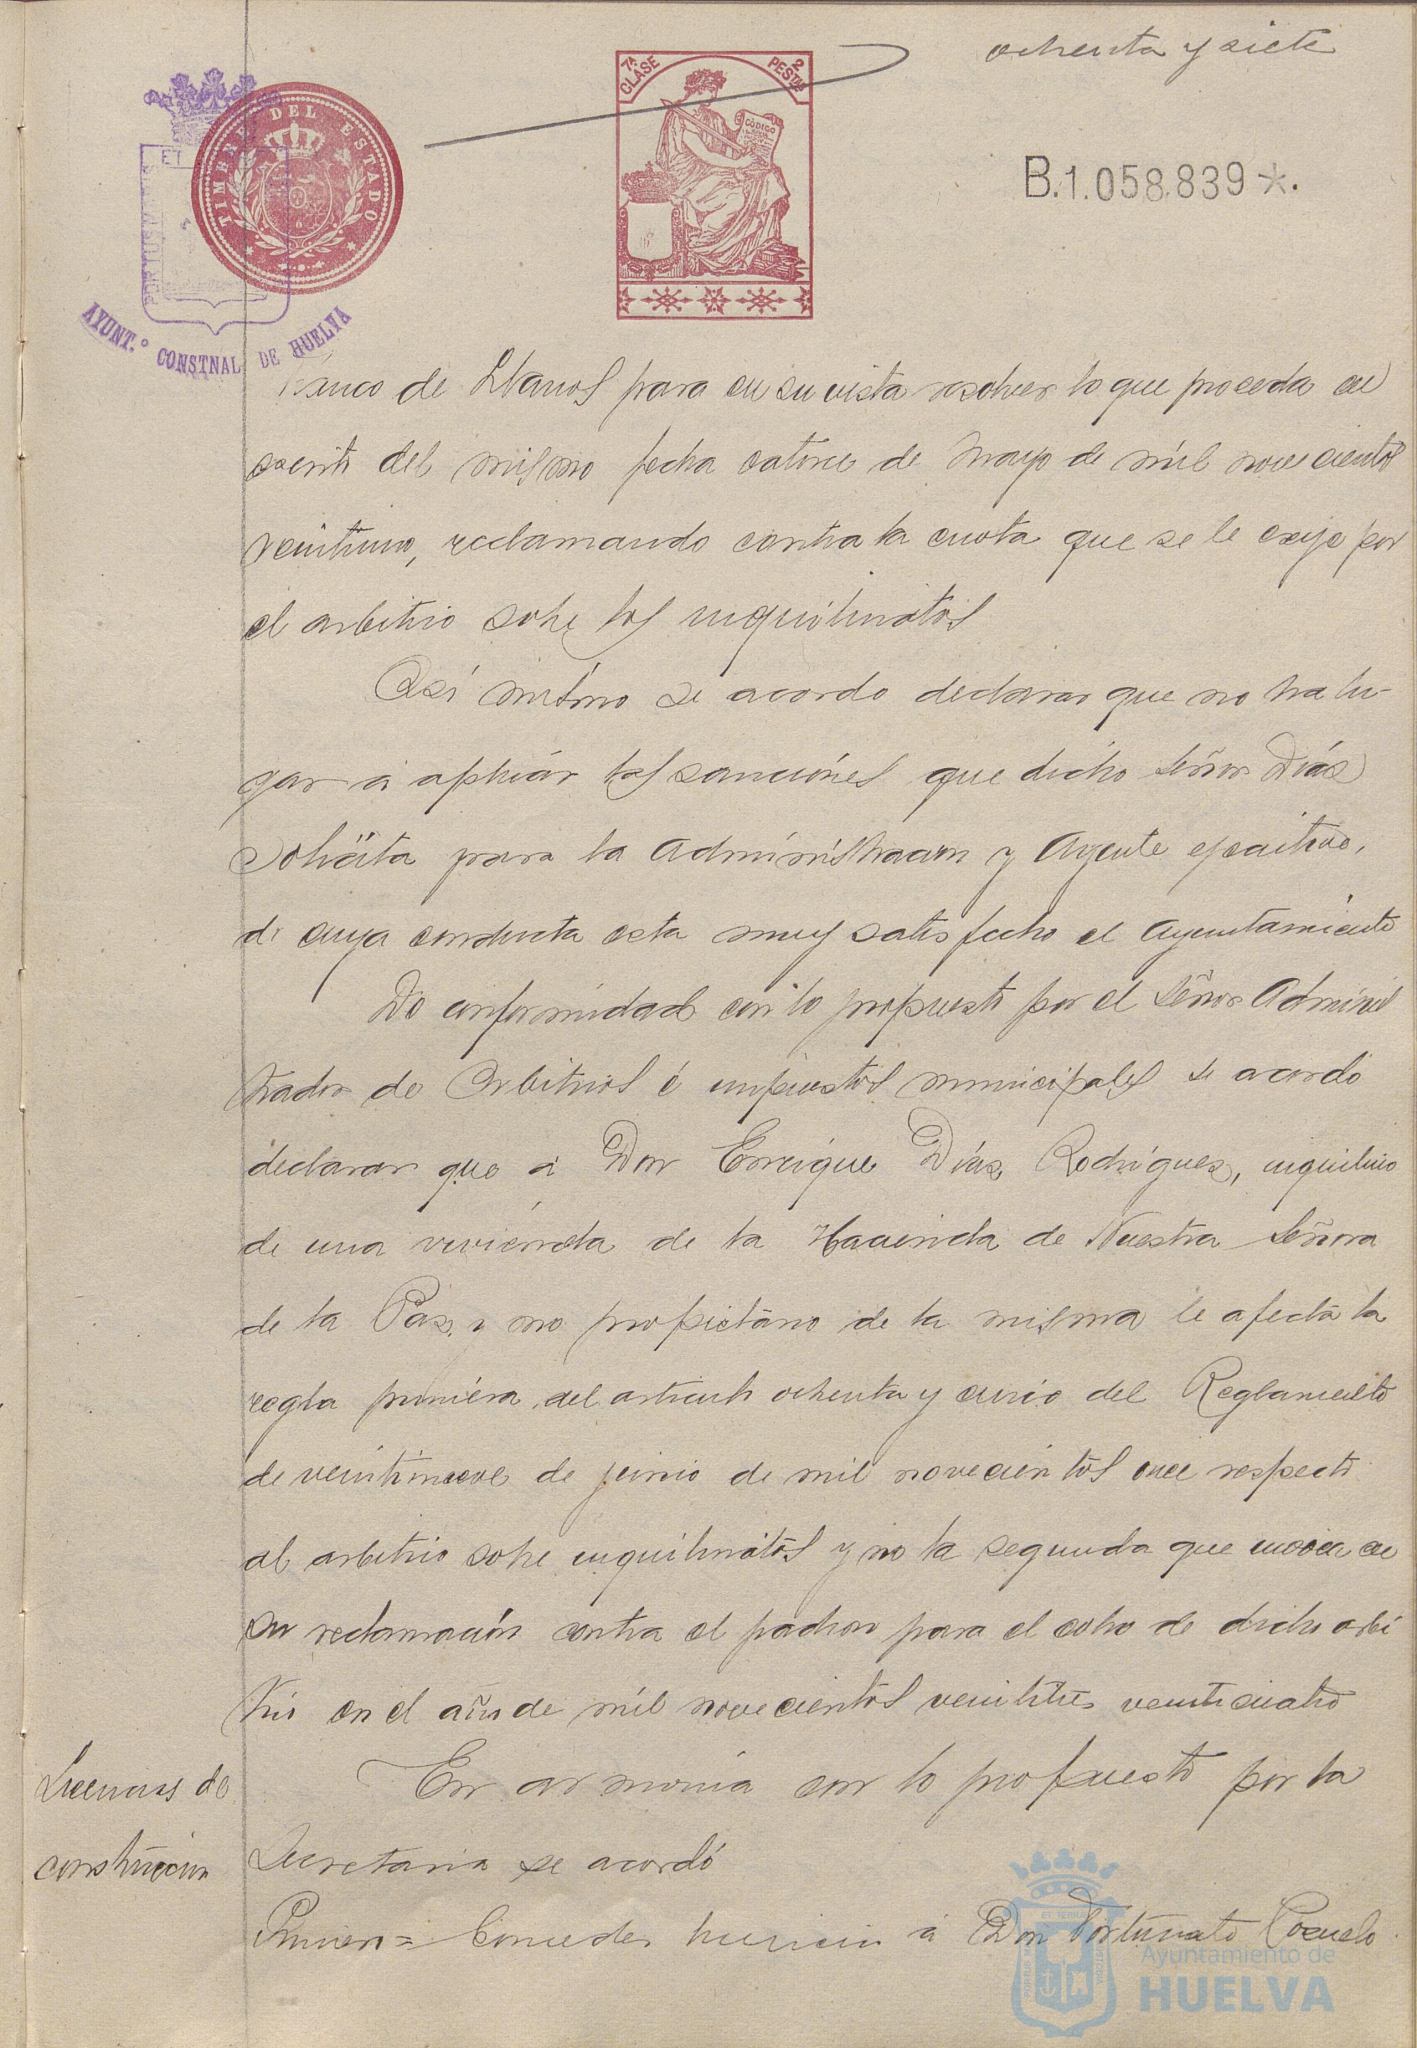 ochenta y siete
7ª CLASE
2 PESTAS
CÓDIGO
TIMBRE DEL ESTADO
B.1.058.839*.
AYUNT.º CONSTNAL DE HUELVA
de Llanos para en su vista resolver lo que proceda en
escrito del mismo fecha catorce de Mayo de mil novecientos
veintiuno, reclamando contra la cuota que se le exije por
el arbitrio sobre los inquilinatos
Asi mismo se acordo declarar que no ha lu-
gar á aplicar las sanciones que dicho señor Días
solicita para la Administracion y Agente ejecutivo,
de cuya conducta esta muy satisfecho el Ayuntamiento
De conformidad con lo propuesto por el señor Adminis
trador de Arbitrios é impuestos municipales se acordó
declarar que á Don Enrique Días Rodrigues, inquilino
de una vivienda de la Hacienda de Nuestra Señora
de la Pas, y no propietario de la misma le afecta la
regla primera del articulo ochenta y cinco del Reglamento
de veintinueve de junio de mil novecientos once respecto
al arbitrio sobre inquilinatos y no la segunda que invoca en
su reclamación contra el padron para el cobro de dicho arbi
trio en el año de mil novecientos veintitres veinticuatro
Licencias de
construccion
En armonia con lo propuesto por la
Secretaria se acordó
Primero = Conceder licencia á Don Fortunato
Ayuntamiento de
HUELVA